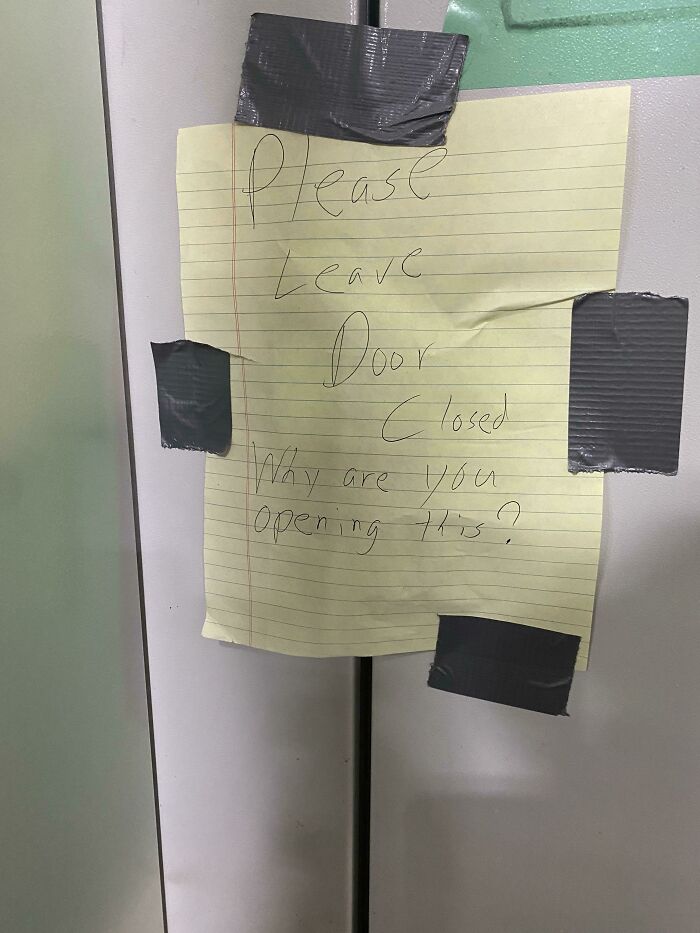 Please
Leave
Door
Closed
Why are you
opening this?